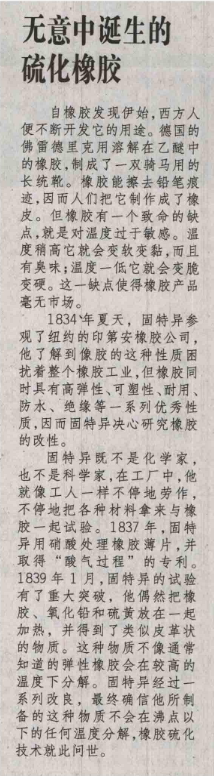 无意中诞生的
硫化橡胶
自橡胶发现伊始,西方人
便不断开发它的用途。德国的
佛雷德里克用溶解在乙醚中
的橡胶,制成了一双骑马用的
长统靴。橡胶能擦去铅笔痕
迹,因而人们把它制作成了橡
皮。但橡胶有一个致命的缺
点,就是对温度过于敏感。温
度稍高它就会变软变黏,而且
有臭味;温度一低它就会变脆
变硬。这一缺点使得橡胶产品
毫无市场。
1834年夏天,固特异参
观了纽约的印第安橡胶公司,
他了解到像胶的这种性质困
扰着整个橡胶工业,但橡胶同
时具有高弹性、可塑性、耐用、
防水、绝缘等一系列优秀性
质,因而固特异决心研究橡胶
的改性。
固特异既不是化学家,
也不是科学家,在工厂中,他
就像工人一样不停地劳作,
不停地把各种材料拿来与橡
胶一起试验。1837年,固特
异用硝酸处理橡胶薄片,并
取得“酸气过程”的专利。
1839年1月,固特异的试验
有了重大突破,他偶然把橡
胶、氧化铅和硫黄放在一起
加热,并得到了类似皮革状
的物质。这种物质不像通常
知道的弹性橡胶会在较高的
温度下分解。固特异经过一
系列改良,最终确信他所制
备的这种物质不会在沸点以
下的任何温度分解,橡胶硫化
技术就此问世。